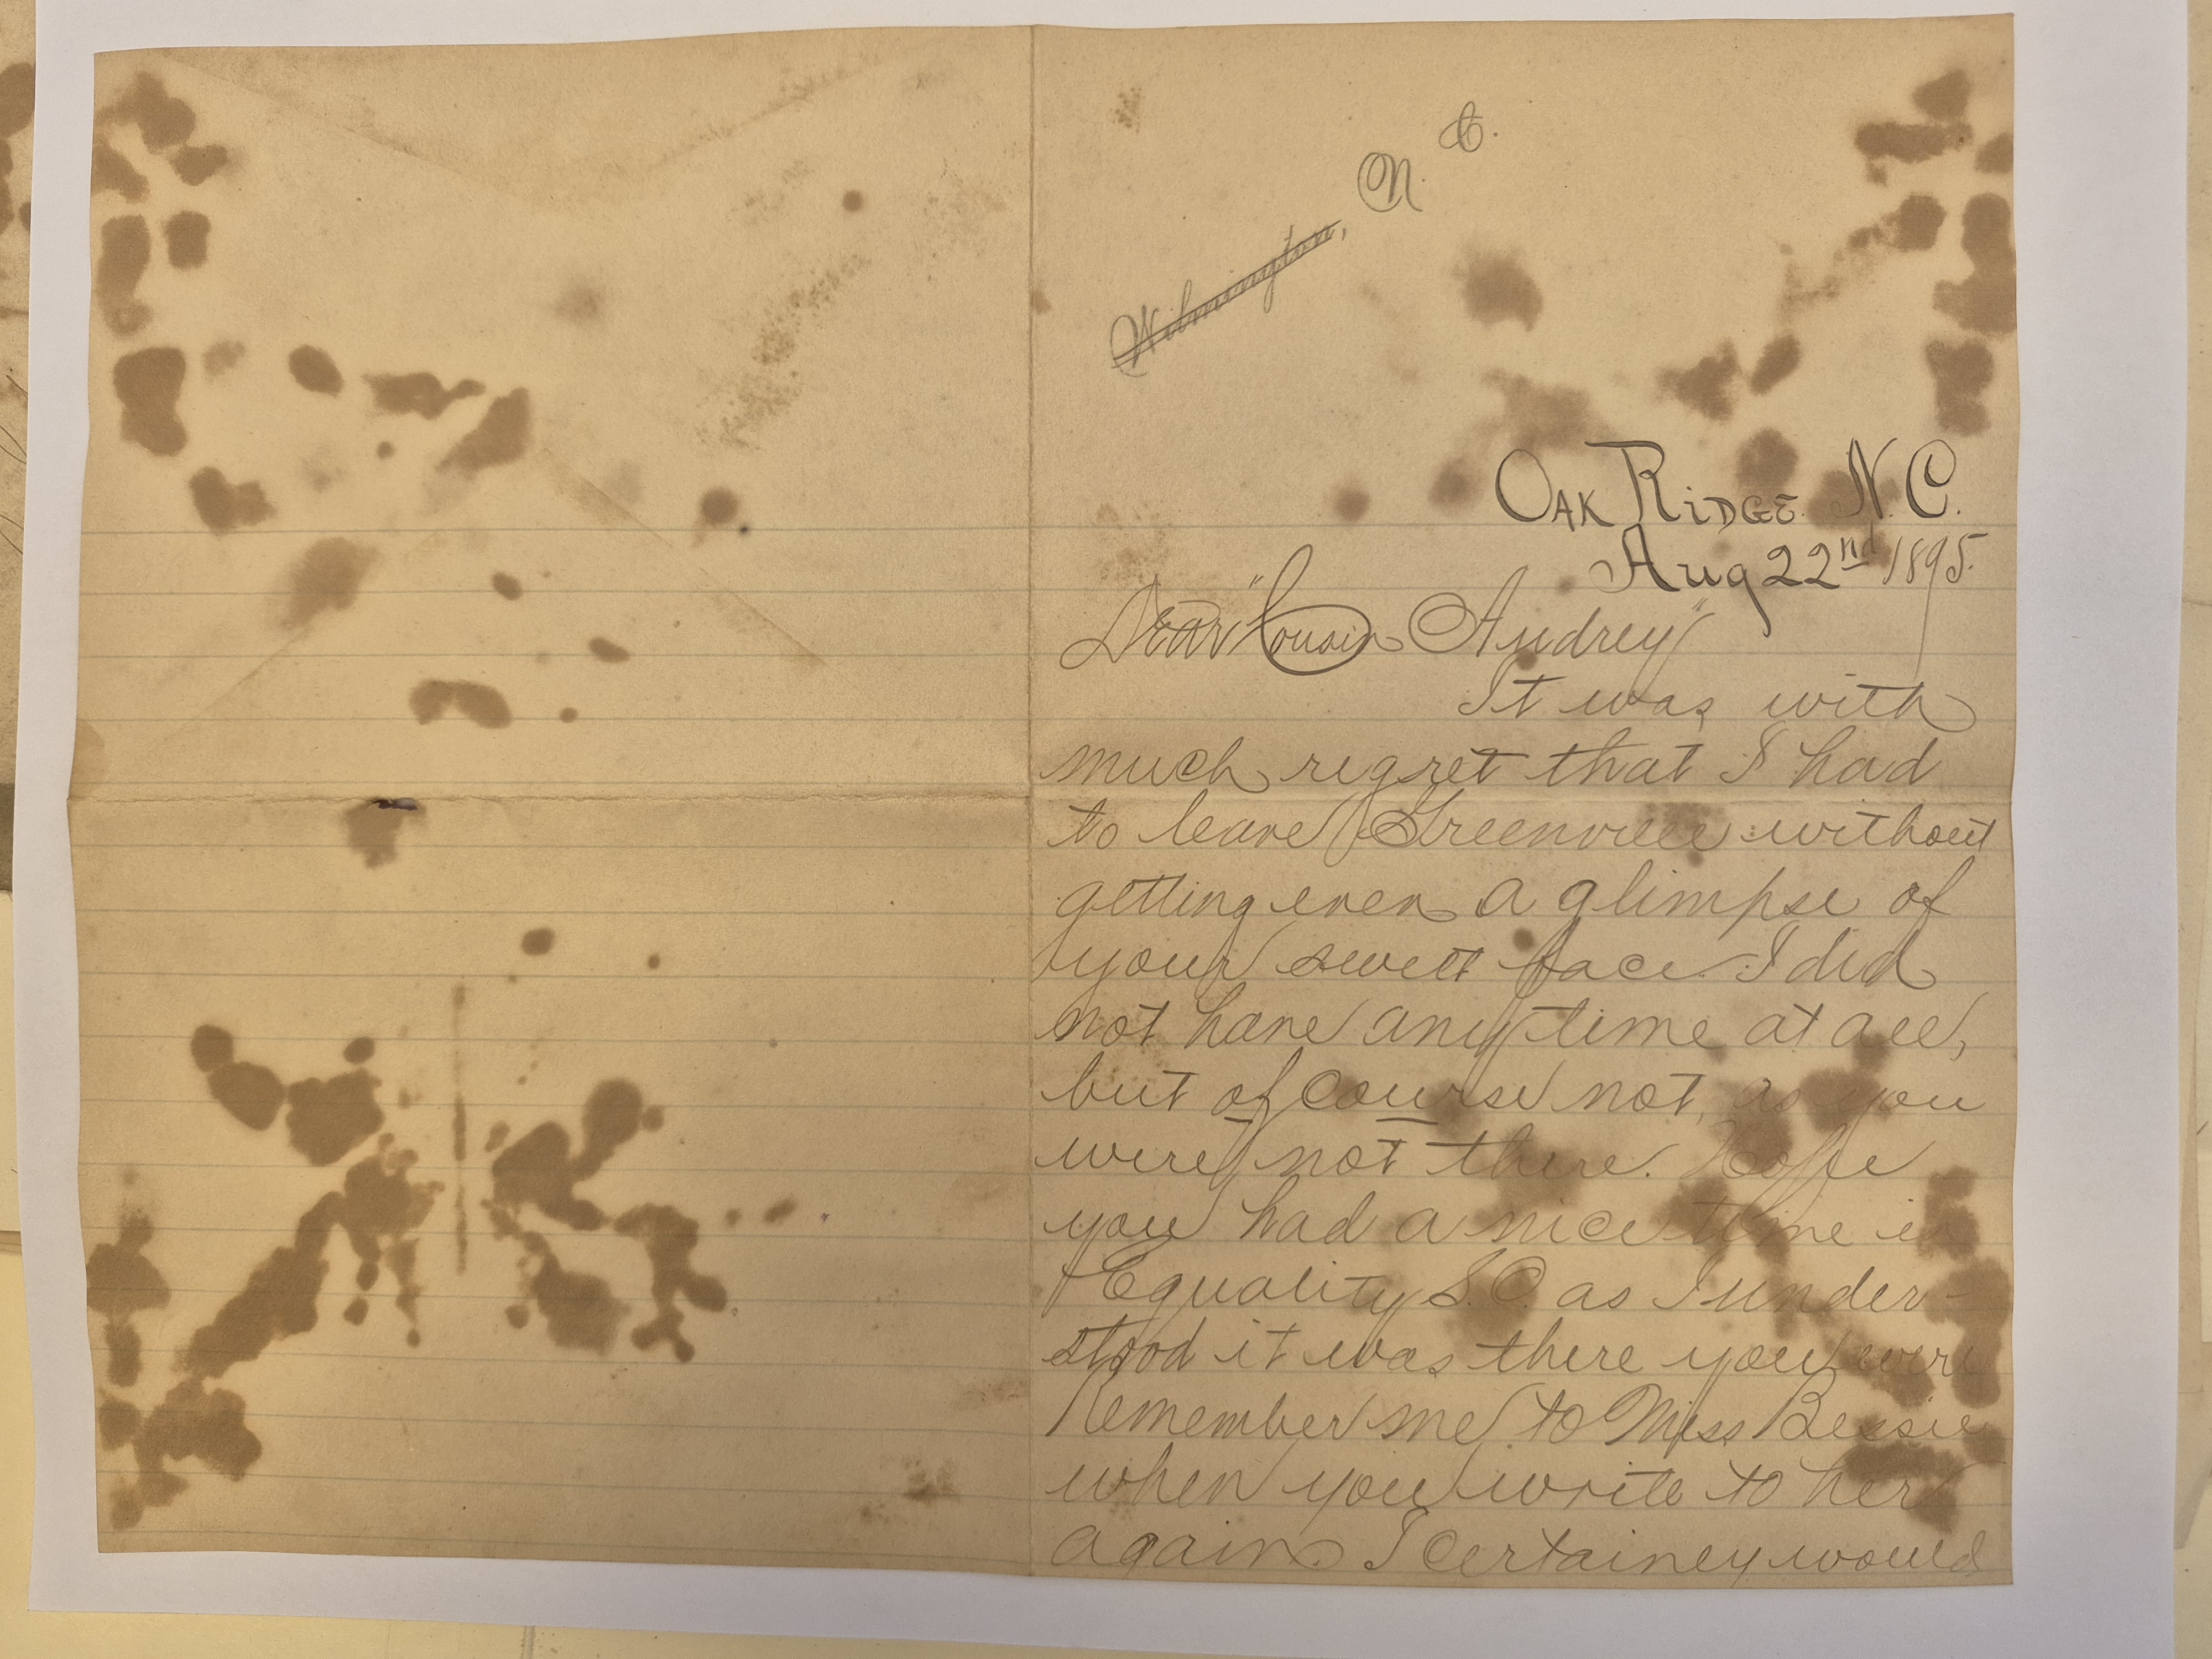 Wilmington, N. C.
Oak Ridge. N. C.
Aug 22nd 1895.
Dear "Cousin Audrey"
It was with
much regret that I had
to leave Greenville without
getting even a glimpse of
your sweet face. I did
not have any time at all,
but of course not, as you
were not there. Hope
you had a nice time in
Equality S.C. as I under-
stood it was there you were
Remember me to Miss Bessie
when you write to her
again. I certainly would